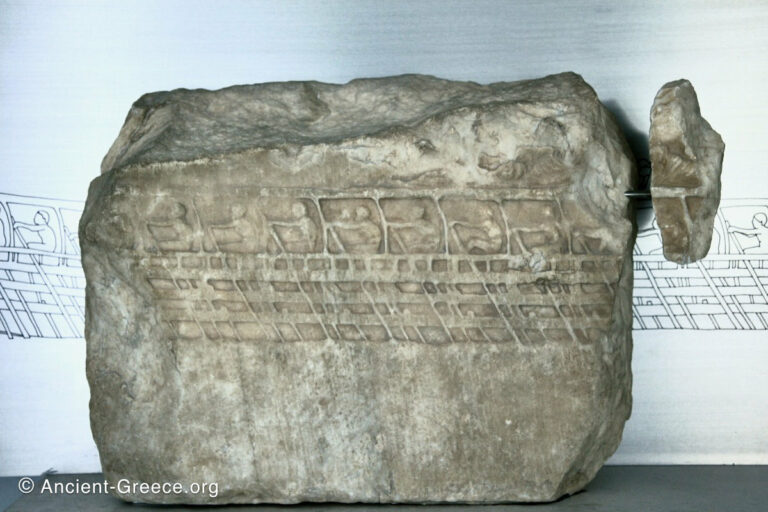 © Ancient-Greece.org